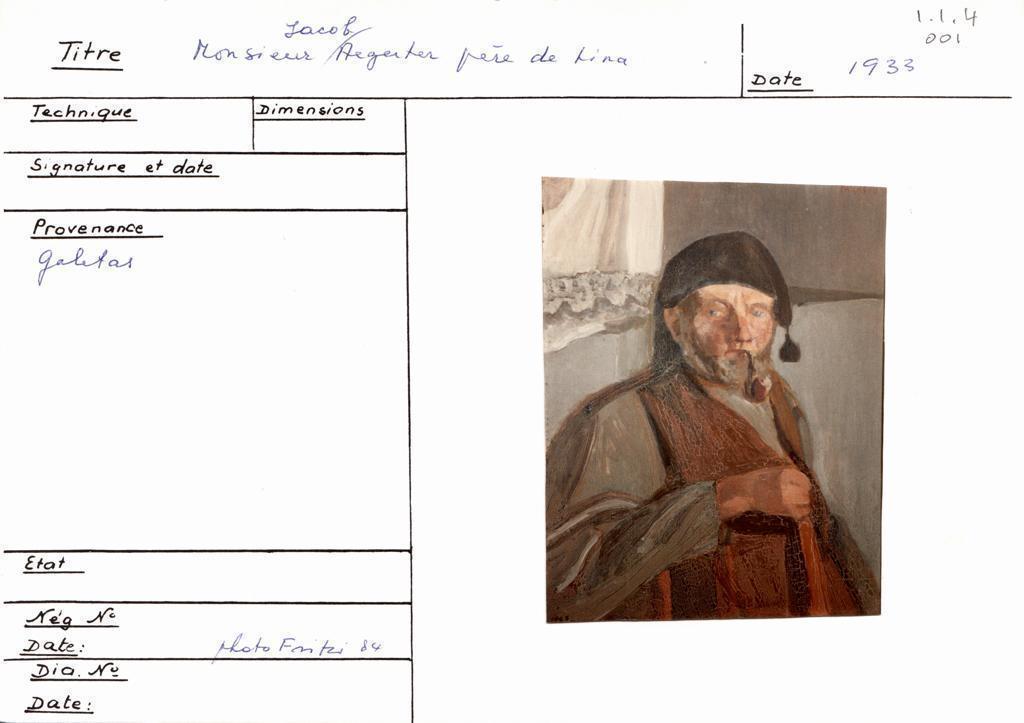 1.1.4
001
Titre Monsieur Jacob Aegerter père de Lina
Date 1933
Technique Dimensions
Signature et date
Provenance
Galetas
Etat
Nég No
Date: photo Fritzi 84
Dia. No
Date: